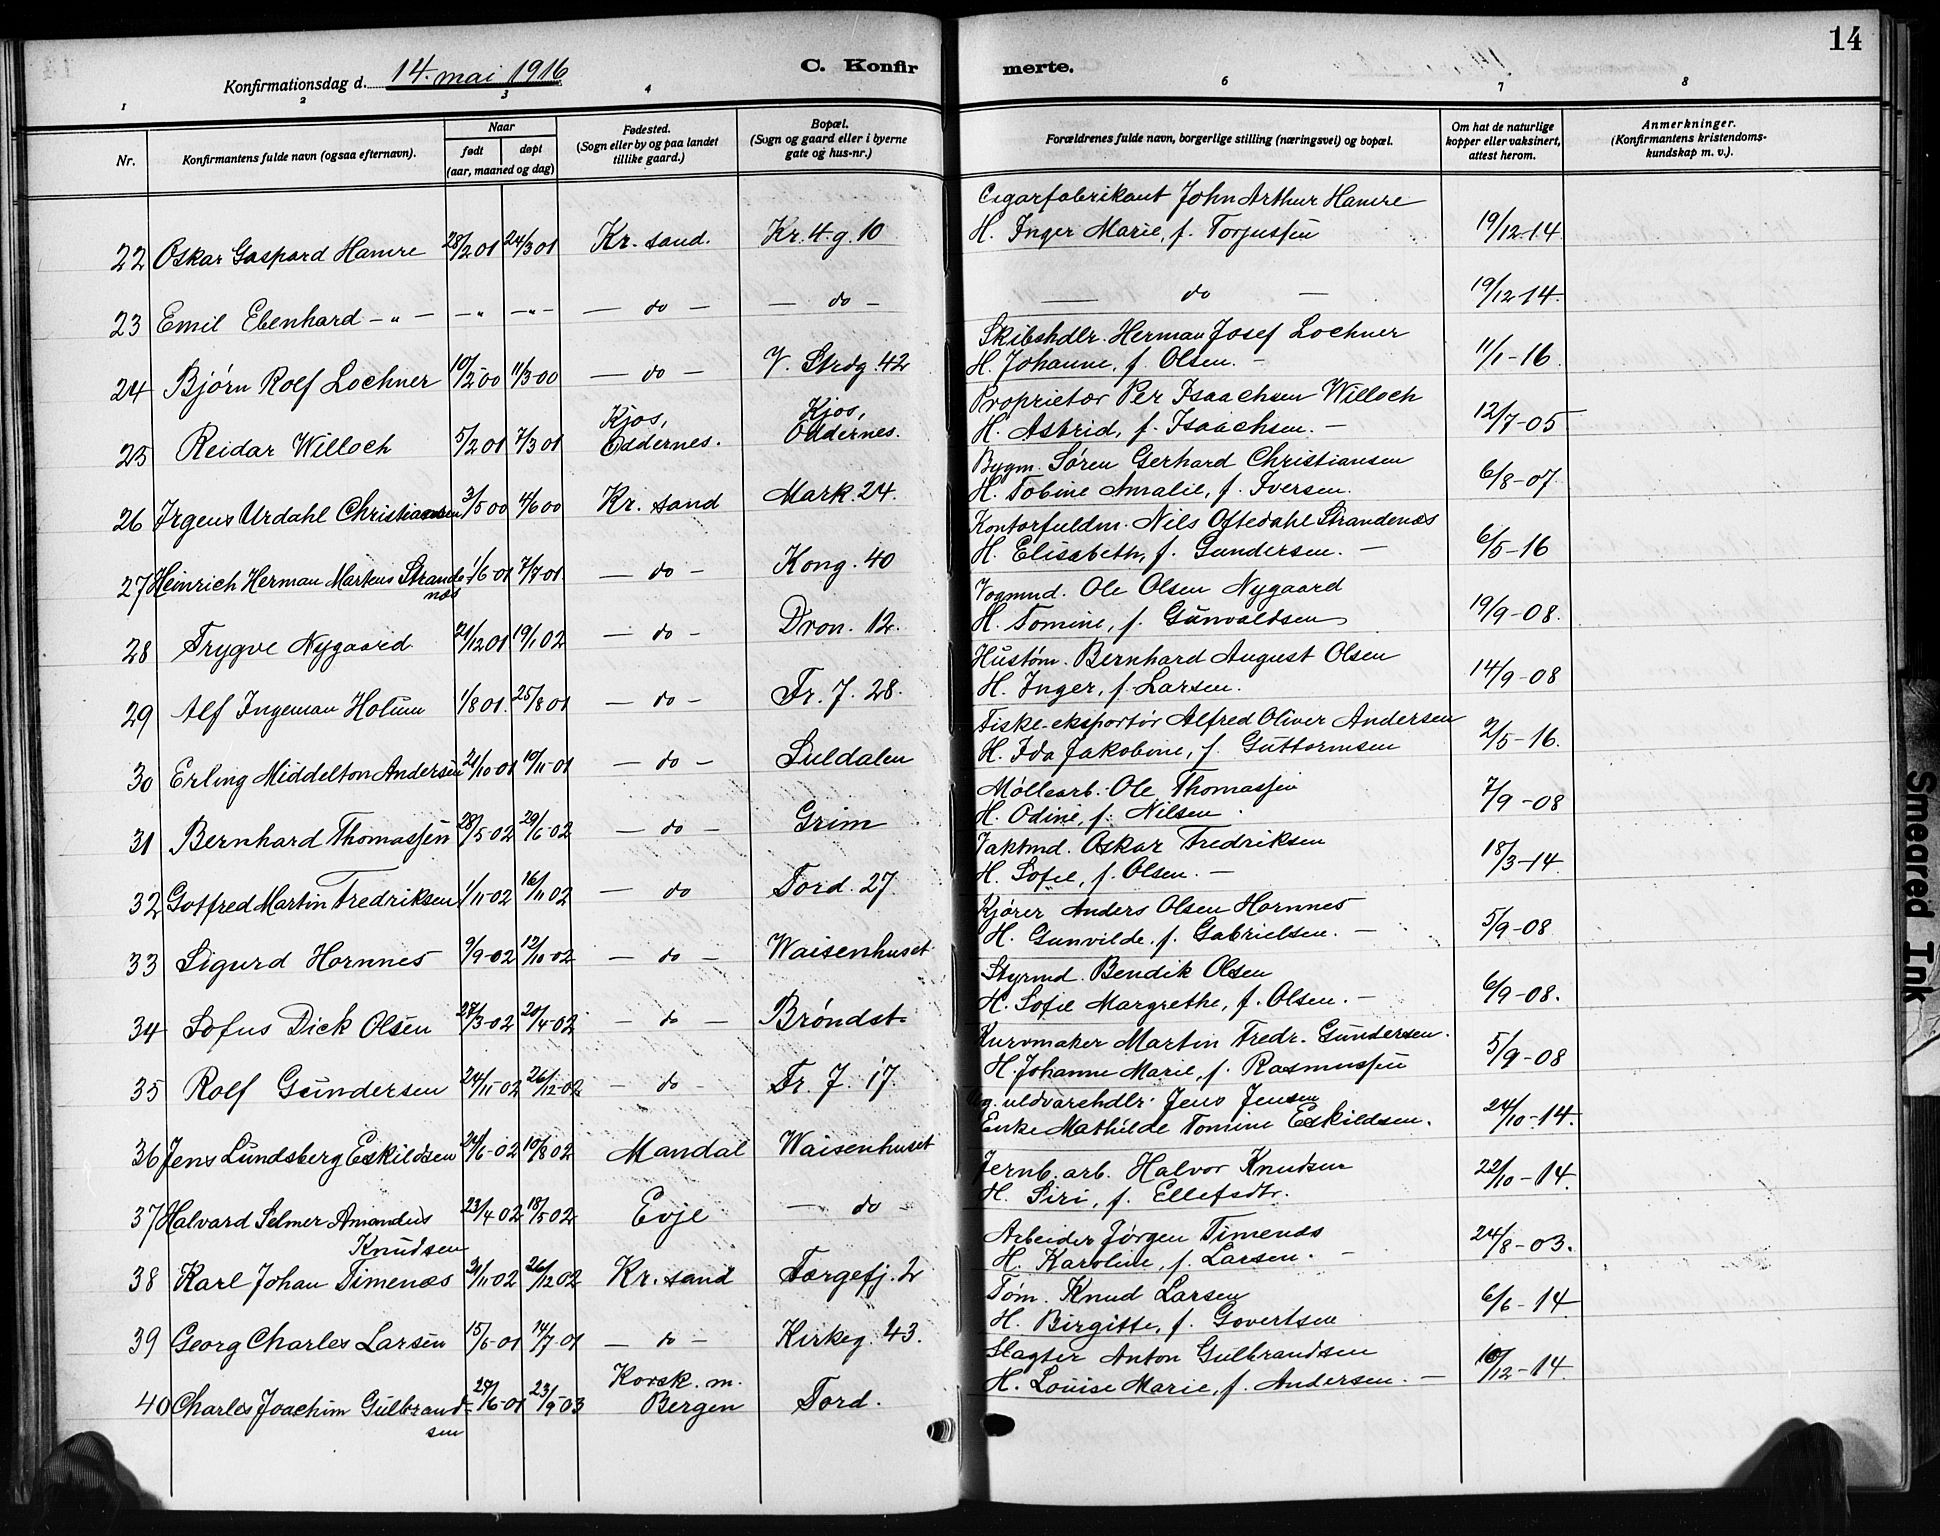 14
Konfirmationsdag d. 14. mai 1916
C. Konfir
merte.
1 2 3 4 6 7 8
Nr.
Konfirmantens fulde navn (ogsaa efternavn).
Naar
født
døpt
(aar, maaned og dag)
Fødested.
(Sogn eller by og paa landet
tillike gaard.)
Bopæl.
(Sogn og gaard eller i byerne
gate og hus-nr.)
Forældrenes fulde navn, borgerlige stilling (næringsvei) og bopæl.
Om hat de naturlige
kopper eller vaksinert,
attest herom.
Anmerkninger.
(Konfirmantens kristendoms-
kundskap m. v.).
Cigarfabrikant John Arthur Hamre
22 Oskar Gaspard Hamre 28/2 01 24/3 01 Kr. sand. Kr. 4. g. 10 H. Inger Marie, f. Torjussen 19/12 14
23 Emil Ebenhard -„- -„- -„- — do — — do — — do — 19/12 14.
Skibshdlr. Herman Josef Lochner
24 Bjørn Rolf Lochner 10/2 00 11/3-00 — do — V. Strdg. 42 H. Johanne, f. Olsen. - 11/1-16
Proprietær Per Isaachsen Willoch
25 Reidar Willoch 5/2 01 7/3 01 Kjos, Oddernes. Kjos, Oddernes. H. Astrid, f. Isaachsen. - 12/7-05
Bygm. Søren Gerhard Christiansen
26 Jrgens Urdahl Christiansen 3/5 00 4/6 00 Kr. sand Mark. 24. H. Tobine Amalie, f. Iversen. 6/8-07
Kontorfuldm. Nils Oftedahl Strandenæs
27 Heinrich Herman Markus Strande- næs 1/6-01 7/7-01 — do — Kong. 40 H. Elisabeth, f. Gundersen. - 6/5-16
Vognmd. Ole Olsen Nygaard
28 Trygve Nygaard 21/12 01 19/1 02 — do — Dron. 12. H. Tomine, f. Gunvaldsen 19/9-08.
Hustøm. Bernhard August Olsen
29 Alf Ingeman Holum 1/8 01. 25/8 01 — do — Fr. 7. 28. H. Inger, f. Larsen. 14/9-08
Fiske-eksportør Alfred Oliver Andersen
30 Erling Middelton Andersen 21/10-01 10/11-01 — do — Suldalen H. Ida Jakobine, f. Guttormsen 2/5-16.
Møllearb. Ole Thomassen
31 Bernhard Thomassen 28/5-02 29/6-02 — do — Grim H. Odine, f. Nilsen 7/9-08
Jaktmd. Oskar Fredriksen
32 Gotfred Martin Fredriksen 1/11-02 16/11 02 — do Tord. 27. H. Sofie, f. Olsen. - 18/3-14.
Kjører Anders Olsen Hornnes
33 Sigurd Hornnes 9/9-02 12/10-02 — do — Waisenhuset H. Gunvilde, f. Gabrielsen. - 5/9-08
Styrmd. Bendik Olsen
34 Sofus Dick Olsen 27/3-02 20/4-02 — do — Brøndst. H. Sofie Margrethe, f. Olsen. - 6/9-08.
Kurvmaker Martin Fredr. Gundersen.
35 Rolf Gundersen 24/11-02 26/12-02 — do — Fr. 7. 17. H. Johanne Marie, f. Rasmussen 5/9-08
uldvarehdlr. Jens Jensen
36 Jens Lundsberg Eskildsen 24/6-02 10/8 02 Mandal Waisenhuset Enke Mathilde Tomine Eskildsen. 24/10-14.
Jernb. arb. Halvor Knudsen
37 Halvard Selmer Amandus Knudsen 23/4 02 18/5 02 Evje — do — H. Siri, f. Ellefsdtr. 22/10-14.
Arbeider Jørgen Timenæs
38 Karl Johan Timenæs 21/11-02 26/12 02 Kr. sand Færgefj. 2 H. Karoline, f. Larsen. - 24/8-03.
Tøm. Knud Larsen
39 Georg Charles Larsen 15/6-01 14/7-01 — do — Kirkeg. 43. H. Birgitte, f. Govertsen 6/6-14
Slagter Anton Gulbrandsen
40 Charles Joachim Gulbrand- sen 27/6-01 23/9-03 Korsk. m. Bergen Tord. H. Louise Marie, f. Andersen. - 10/12-14.
Smeared Ink